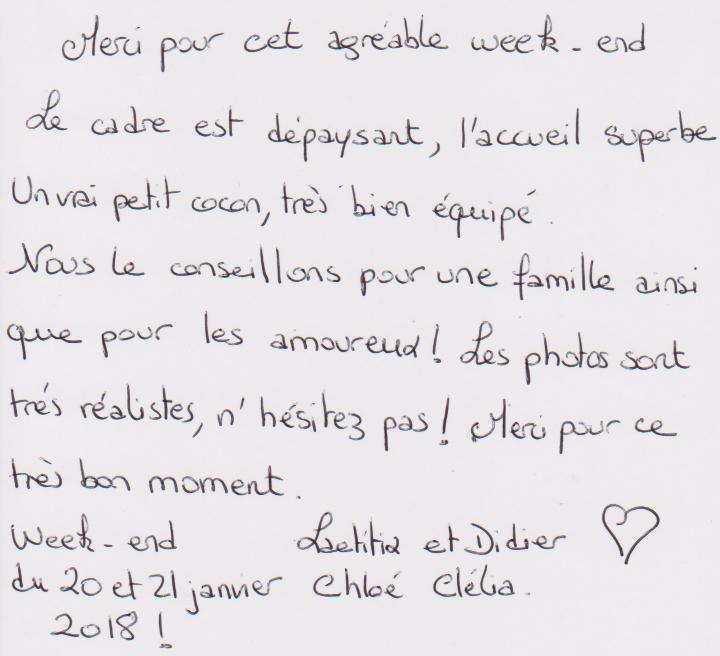 Merci pour cet agréable week-end
Le cadre est dépaysant, l'accueil superbe
Un vrai petit cocon, très bien équipé.
Nous le conseillons pour une famille ainsi
que pour les amoureux! Les photos sont
trés réalistes, n'hésitez pas! Merci pour ce
très bon moment.
Week-end Laetitia et Didier
du 20 et 21 janvier Chloé Clélia.
2018!